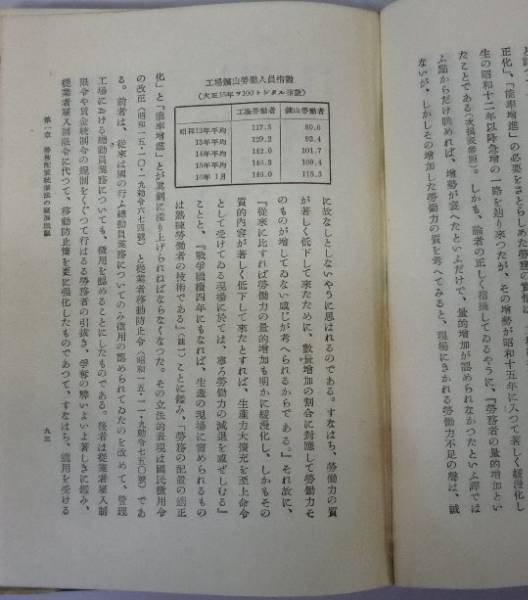 正化」、「能率増進」の必要をさとらしめた労務の質は、
生の昭和十二年以降急増の一路を辿り来つたが、その増勢が昭和十五年に入つて著しく緩漫化し
たことである(次掲表参照)。しかも、論者の正しく指摘してゐるやうに、『労務者の量的増加とい
ふ點からだけ眺めれば、増勢が衰へたといふだけで、量的増加が認められなかつたといふ譯では
ないが、しかしその増加した労働力の質を考へてみると、現場にきかれる労働力不足の聲は、誠
に故なしとしないやうに思はれるのである。すなはち、労働力の質
が著しく低下して来たために、數量増加の割合に對應して労働力そ
のものが増してゐない感じが考へられるからである。』それ故に、
『従来に比すれば労働力の量的増加も明かに緩漫化し、しかもその
質的内容が著しく低下して来たとすれば、生産力大擴充を至上命令
として受けてゐる現場に於ては、寧ろ労働力の減退を直ぜしむる』
ことと、『戦争繼續四年にもなれば、生産の現場に需められるもの
は熟練労働者の技術である』(註一)ことに鑑み、「労務の配置の適正
工場鑛山勞働人員指數
(大正15年ヲ100トシタル指数)
工場勞働者 鑛山勞働者
昭和12年平均 117.5 80.6
13年平均 129.2 92.4
14年平均 142.0 101.7
15年平均 146.3 109.4
16年1月 146.0 115.3
化」と「能率増進」とが眞劍に採り上げられねばならなくなつた。その立法的表現は國民徴用令
の改正(昭和一五・一〇・一九勅令六七四號)と従業者移動防止令(昭和一五・一一・九勅令七五〇號)であ
る。前者は、従来は國の行ふ總動員業務についてのみ徴用の認められてゐたのを改めて、管理
工場における總動員業務についても、徴用を認めることにしたものである。後者は従業者雇入制
限令や賃金統制令の規制をくぐつて行はるる労務者の引抜き、爭奪の弊いよいよ著しきに鑑み、
従業者雇入制限令に代つて、移動防止策を更に强化したものであつて、すなはち、適用を受ける
第一章 勞務配置統制法の展開
九三